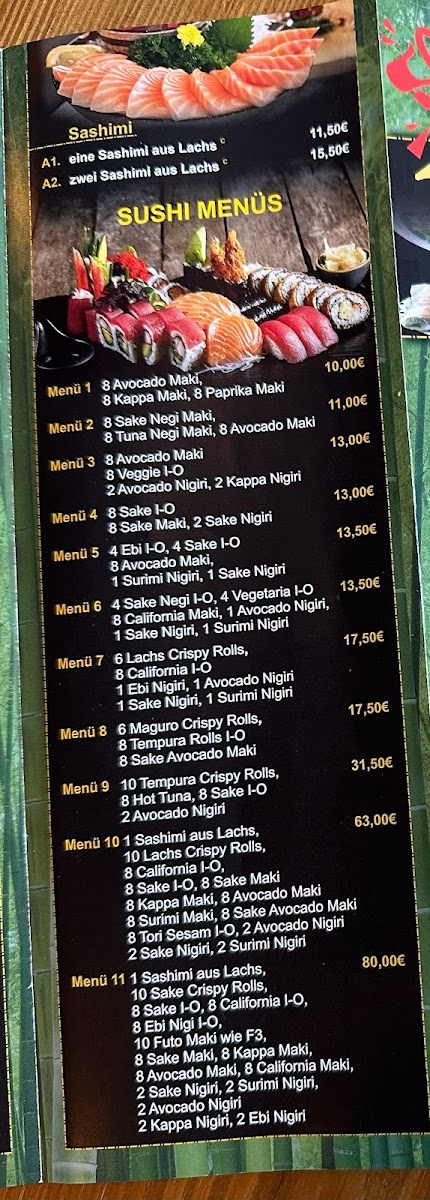 Sashimi
A1. eine Sashimi aus Lachs c 11,50€
A2. zwei Sashimi aus Lachs c 15,50€
SUSHI MENÜS
Menü 1 8 Avocado Maki, 10,00€
8 Kappa Maki, 8 Paprika Maki
Menü 2 8 Sake Negi Maki, 11,00€
8 Tuna Negi Maki, 8 Avocado Maki
Menü 3 8 Avocado Maki 13,00€
8 Veggie I-O
2 Avocado Nigiri, 2 Kappa Nigiri
Menü 4 8 Sake I-O 13,00€
8 Sake Maki, 2 Sake Nigiri
Menü 5 4 Ebi I-O, 4 Sake I-O 13,50€
8 Avocado Maki,
1 Surimi Nigiri, 1 Sake Nigiri
Menü 6 4 Sake Negi I-O, 4 Vegetaria I-O 13,50€
8 California Maki, 1 Avocado Nigiri,
1 Sake Nigiri, 1 Surimi Nigiri
Menü 7 6 Lachs Crispy Rolls, 17,50€
8 California I-O
1 Ebi Nigiri, 1 Avocado Nigiri
1 Sake Nigiri, 1 Surimi Nigiri
Menü 8 6 Maguro Crispy Rolls, 17,50€
8 Tempura Rolls I-O
8 Sake Avocado Maki
Menü 9 10 Tempura Crispy Rolls, 31,50€
8 Hot Tuna, 8 Sake I-O
2 Avocado Nigiri
Menü 10 1 Sashimi aus Lachs, 63,00€
10 Lachs Crispy Rolls,
8 California I-O,
8 Sake I-O, 8 Sake Maki
8 Kappa Maki, 8 Avocado Maki
8 Surimi Maki, 8 Sake Avocado Maki
8 Tori Sesam I-O, 2 Avocado Nigiri
2 Sake Nigiri, 2 Surimi Nigiri
Menü 11 1 Sashimi aus Lachs, 80,00€
10 Sake Crispy Rolls,
8 Sake I-O, 8 California I-O,
8 Ebi Nigi I-O,
10 Futo Maki wie F3,
8 Sake Maki, 8 Kappa Maki,
8 Avocado Maki, 8 California Maki,
2 Sake Nigiri, 2 Surimi Nigiri,
2 Avocado Nigiri
2 Kappa Nigiri, 2 Ebi Nigiri